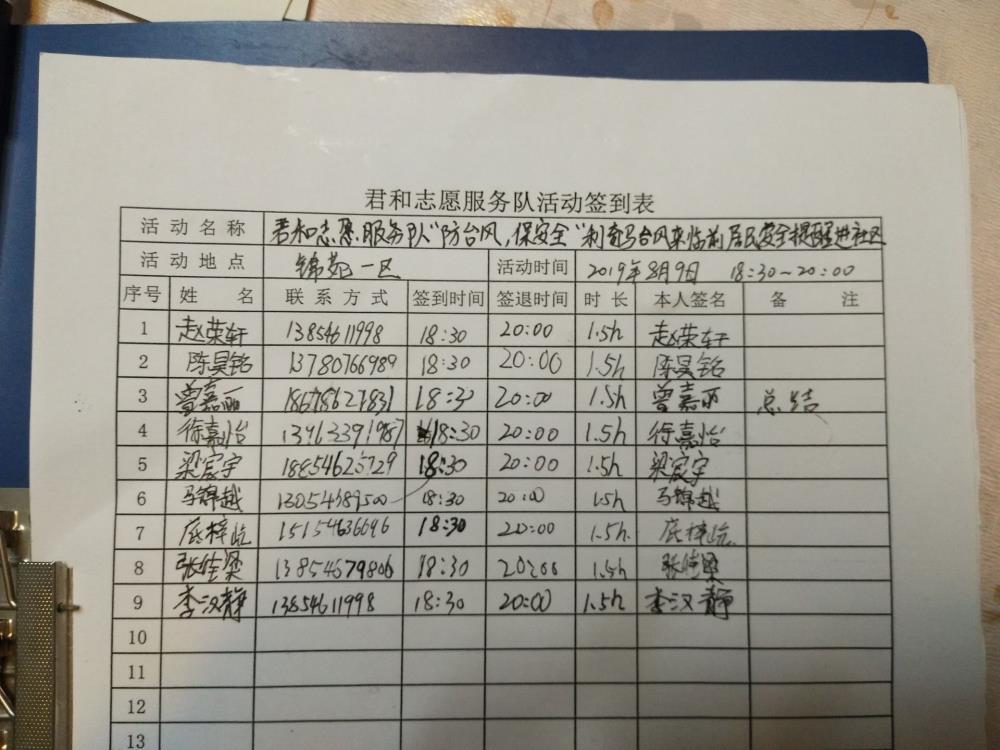 君和志愿服务队活动签到表
活动名称 君和志愿服务队"防台风,保安全"利奇马台风来临前居民安全提醒进社区
活动地点 锦苑一区 活动时间 2019年8月9日 18:30~20:00
序号 姓名 联系方式 签到时间 签退时间 时长 本人签名 备注
1 赵荣轩 13854611998 18:30 20:00 1.5h 赵荣轩
2 陈昊铭 13780766989 18:30 20:00 1.5h 陈昊铭
3 曾嘉丽 18678627831 18:30 20:00 1.5h 曾嘉丽 总结
4 徐嘉怡 13963391987 18:30 20:00 1.5h 徐嘉怡
5 梁宸宇 18:30 20:00 1.5h 梁宸宇
6 马锦越 13054389500 18:30 20:00 1.5h 马锦越
7 18:30 20:00 1.5h
8 18:30 20:00 1.5h
9 李汉静 13854611998 18:30 20:00 1.5h 李汉静
10
11
12
13